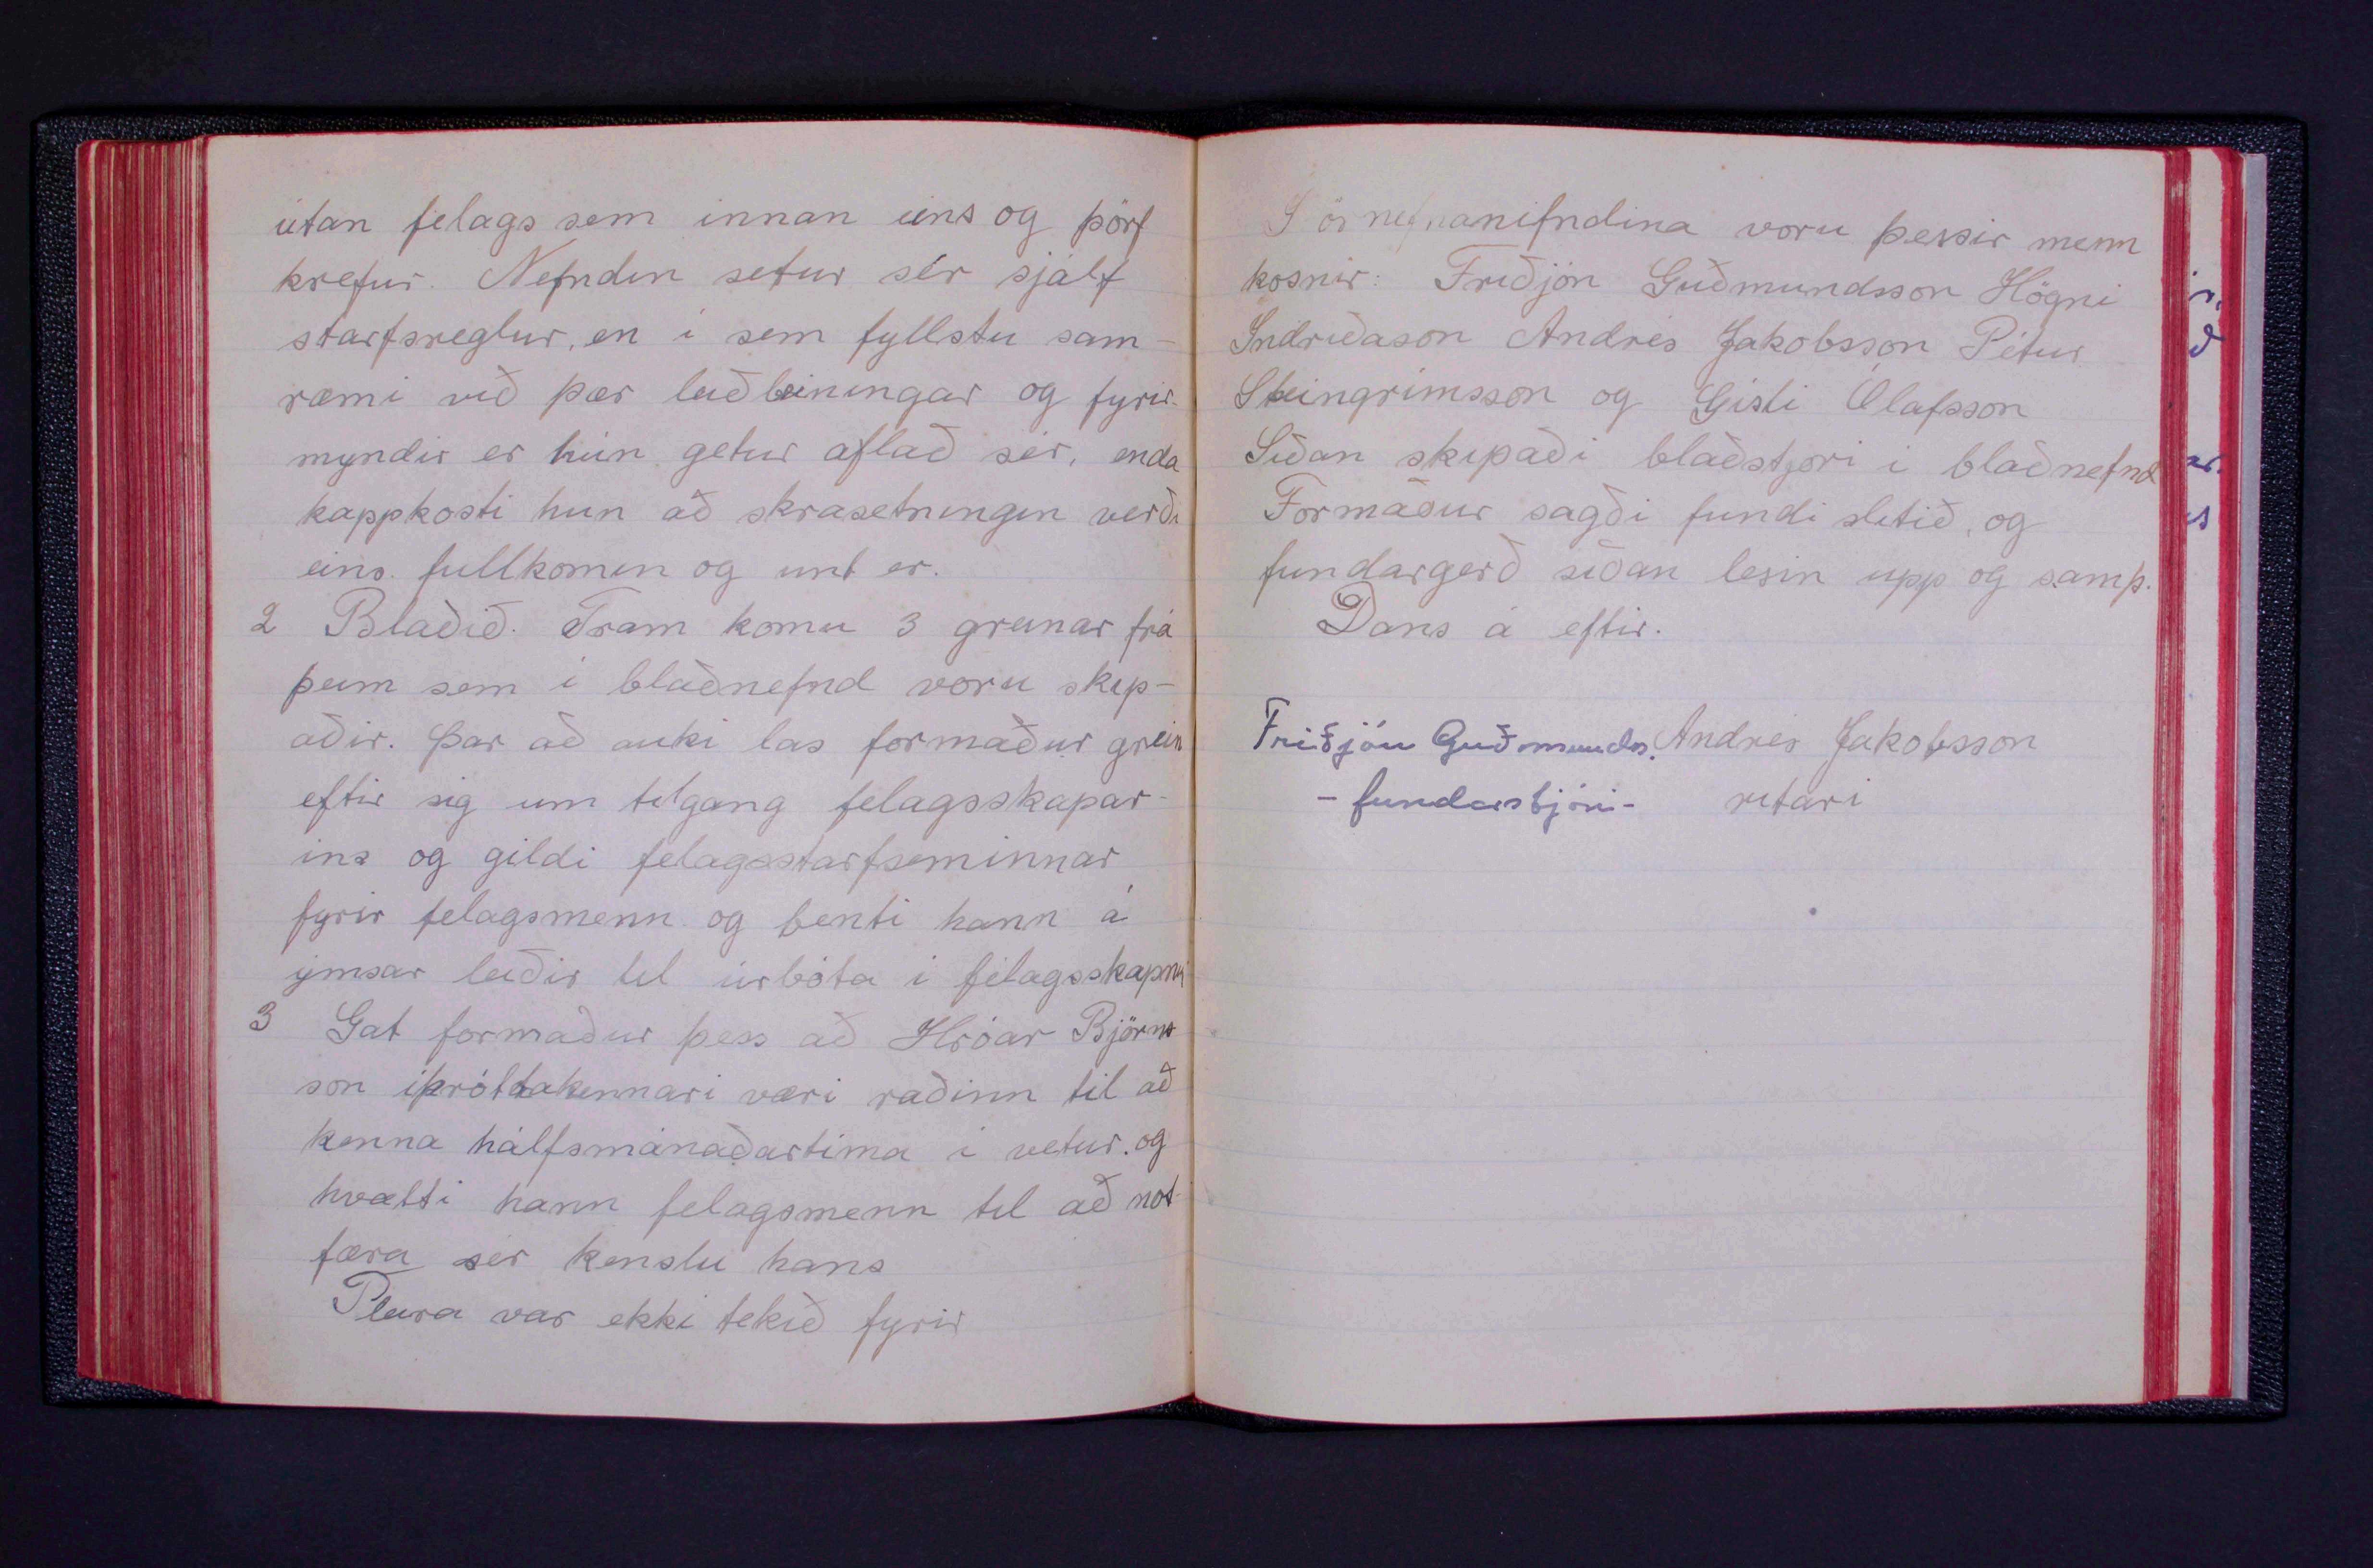 útan felags sem innan eins og þörf
krefur. Nefndin setur sér sjálf
starfsreglur, en í sem fyllstu sam-
ræmi við þær leiðbeiningar og fyrir-
myndir er hún getur aflað sér, enda
kappkosti hun að skrasetningin verði
eins fullkomin og unt er.
2 Blaðið. Fram komu 3 greinar frá
þeim sem í blaðnefnd voru skip-
aðir. Þar að auki las formaður grein
eftir sig um tilgang felagsskapar-
ins og gildi felagsstarfseminnar
fyrir felagsmenn og benti hann á
ýmsar leiðir til úrbóta i félagsskapnu
3 Gat formaður þess að Hróar Björns
son íþróttakennari væri raðinn til að
kenna hálfsmánaðartíma í vetur. og
hvatti hann felagsmenn til að not-
færa sér kenslu hans
Pleira var ekki tekið fyrir
I örnefnanefndina voru þessir menn
kosnir: Friðjón Guðmundsson Högni
Indriðason Andrés Jakobsson Pétur
Steingrímsson og Gísli Ólafsson
Síðan skipaði blaðstjori í blaðnefnd
Formaður sagði fundi slitið, og
fundargerð síðan lesin upp og samþ.
Dans á eftir.
Friðjón Guðmunds. Andrés Jakobsson
- fundarstjóri - ritari